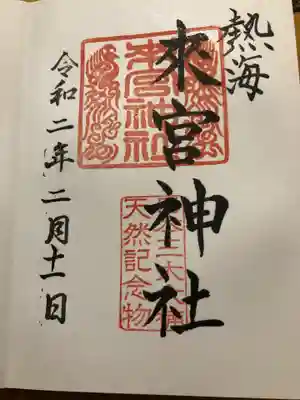 熱海
來宮神社
來宮神社
天然記念物
令和二年二月十一日